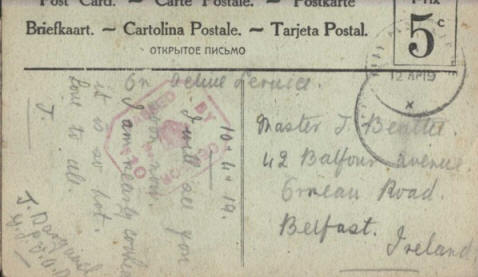 Post Card. — Carte Postale. — Postkarte
Briefkaart. — Cartolina Postale. — Tarjeta Postal.
ОТКРЫТОЕ ПИСЬМО
Prix
5 c
12 AP 19
On Active Service.
10.4.19.
I will see you
soon now.
I am nearly cooked
it is so hot.
Love to all.
J.
Master J. Beattie
42 Balfour Avenue
Ormeau Road.
Belfast.
Ireland
PASSED BY